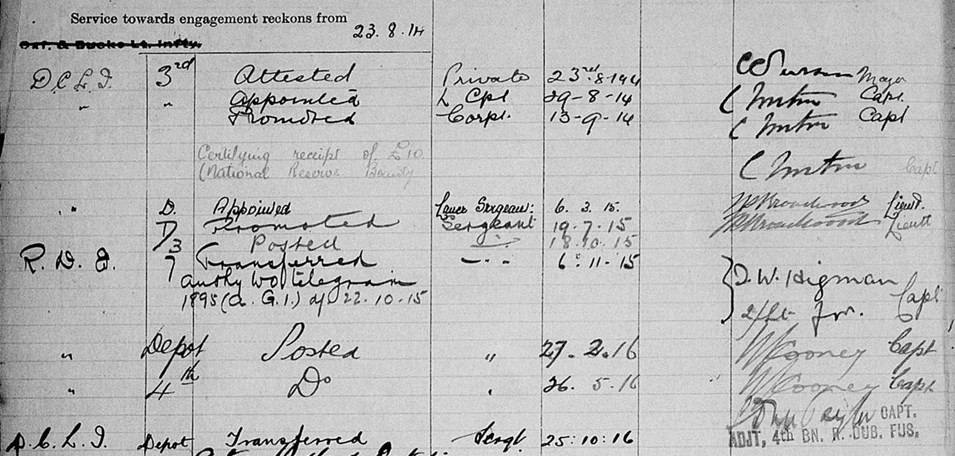 Service towards engagement reckons from 23.8.14
Oxf. & Bucks Lt. Infty.
D.C.L.I. 3rd Attested Private 23rd.8.1914 Major
" " Appointed L Cpl 29-8-14 Capt.
Promoted Corpl. 13-9-14 Capt
Certifying receipt of £10
(National Reserve Bounty Capt
" D. Appointed Lance Sergeant 6.3.15. Lieut.
D Promoted Sergeant 19.7.15 Lieutt
3 Posted 18.10.15
R.D.F. 7 Transferred 6.11.15
Authy WO telegram J.W. Higman
1895 (A.G.1.) of 22.10.15 Capt
" Depot Posted " 27.2.16 Cooney Capt
" 4th Do 26.5.16 Cooney Capt
CAPT.
ADJT, 4th BN. R. DUB. FUS,
D.C.L.I. Depot Transferred Sergt 25:10:16